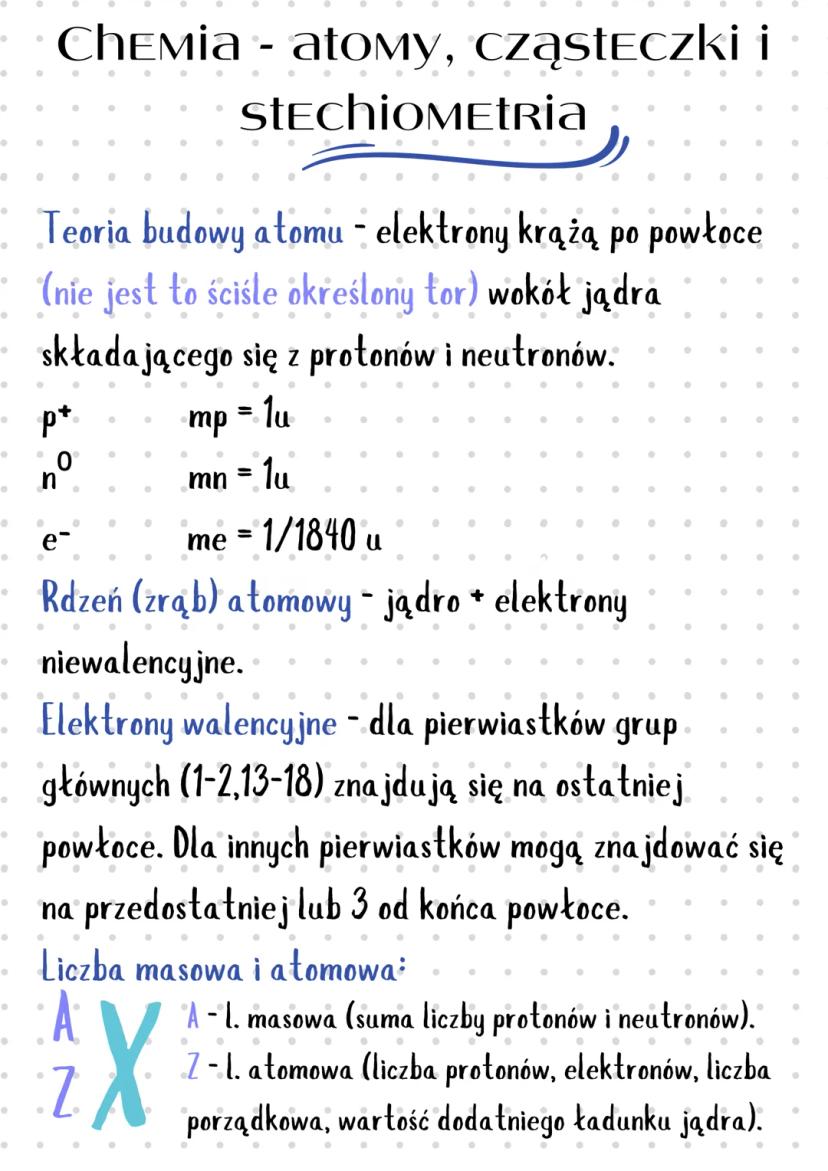 Chemia - atomy, cząsteczki i
stechiometria
Teoria budowy atomu - elektrony krążą po powłoce
(nie jest to ściśle określony tor) wokół jądra
składającego się z protonów i neutronów.
p⁺ mp = 1u
n⁰ mn = 1u
e⁻ me = 1/1840 u
Rdzeń (zrąb) atomowy - jądro + elektrony
niewalencyjne.
Elektrony walencyjne - dla pierwiastków grup
głównych (1-2,13-18) znajdują się na ostatniej
powłoce. Dla innych pierwiastków mogą znajdować się
na przedostatniej lub 3 od końca powłoce.
Liczba masowa i atomowa:
A X A - l. masowa (suma liczby protonów i neutronów).
Z Z - l. atomowa (liczba protonów, elektronów, liczba
porządkowa, wartość dodatniego ładunku jądra).